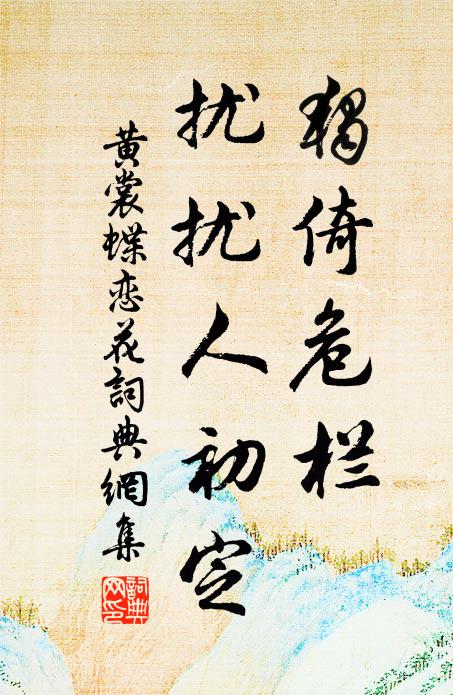 獨倚危栏
扰扰人初定
黄裳蝶恋花詞典網集
詞典